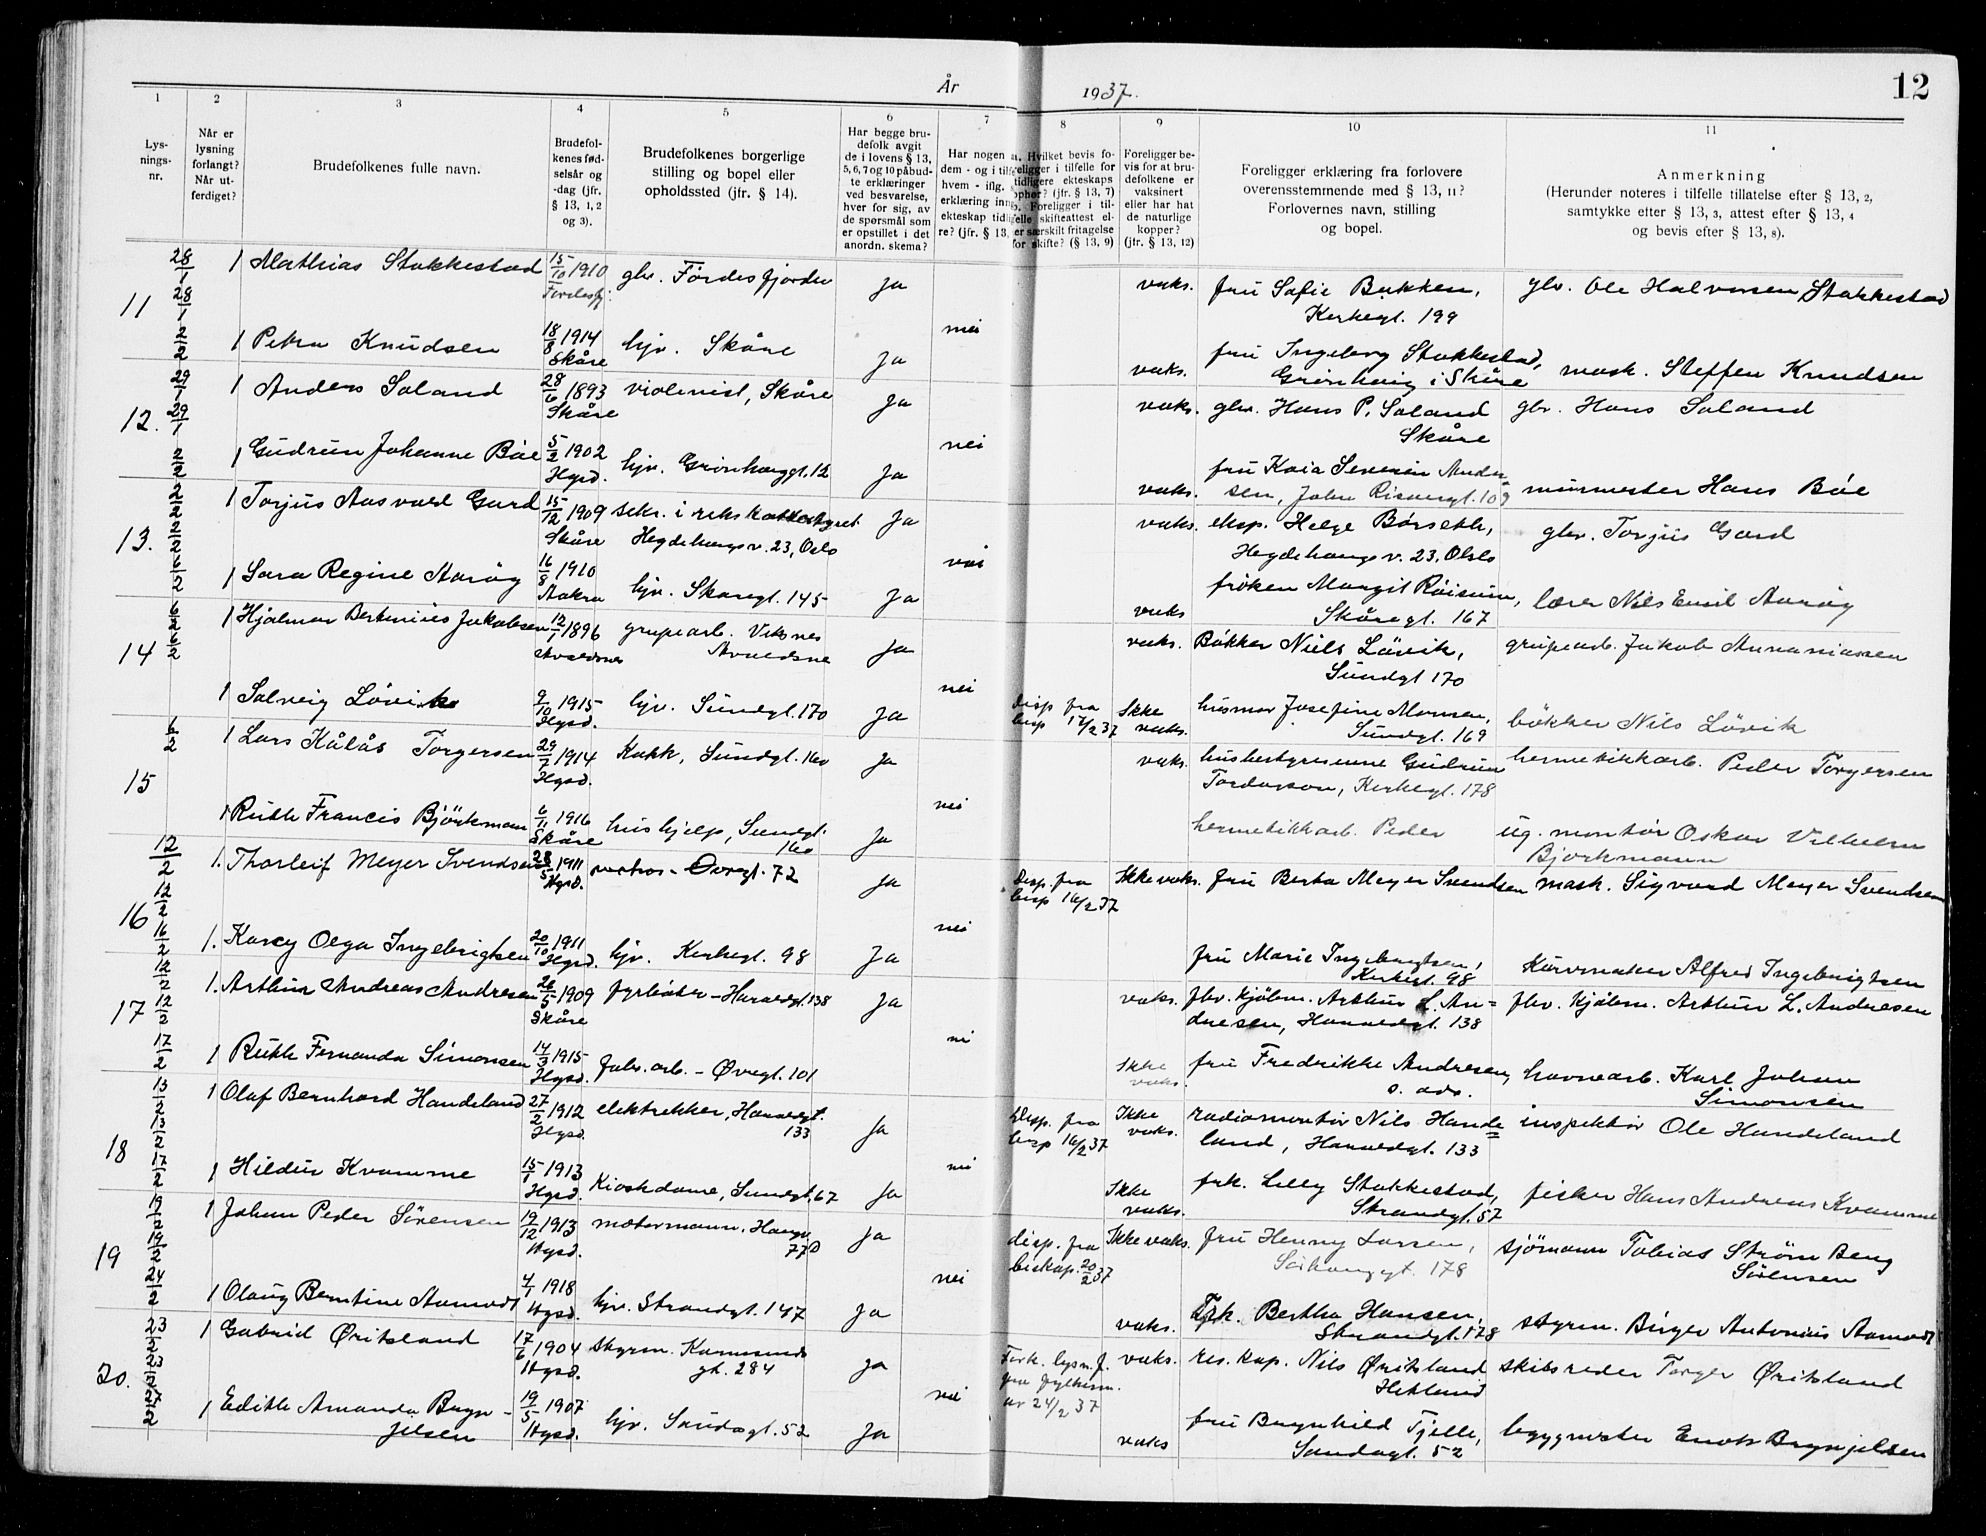 År 1937.
12
1 2 3 4 5 6 7 8 9 10 11
Lys-
nings-
nr.
Når er
lysning
forlangt?
Når ut-
ferdiget?
Brudefolkenes fulle navn.
Brudefol-
kenes fød-
selsår og
-dag (jfr.
§ 13, 1, 2
og 3).
Brudefolkenes borgerlige
stilling og bopel eller
opholdssted (jfr. § 14).
Har begge bru-
defolk avgit
de i lovens § 13,
5, 6, 7 og 10 påbud-
te erklæringer
ved besvarelse,
hver for sig, av
de spørsmål som
er opstillet i det
anordn. skema?
Har nogen a
dem - og i tilf
hvem - iflg.
erklæring inn
ekteskap tid
re? (jfr. § 13,
Hvilket bevis fo-
religger i tilfelle for
tidligere ekteskaps
ophør? (jfr. § 13, 7)
Foreligger i til-
felle skifteattest el-
er særskilt fritagelse
for skifte? (§ 13, 9)
Foreligger be-
vis for at bru-
defolkene er
vaksinert
eller har hat
de naturlige
kopper?
(jfr. § 13, 12)
Foreligger erklæring fra forlovere
overensstemnende med § 13, 11?
Forlovernes navn, stilling
og bopel.
Anmerkning
(Herunder noteres i tilfelle tillatelse efter § 13, 2,
samtykke efter § 13, 3, attest efter § 13, 4
og bevis efter § 13, 8).
11 28/1 28/1 2/2
1 Mathias Stakkestad 15/10 1910 gbr. Førdesfjorden ja vaks. fru Sofie Bakken, gbr. Ole Halvorsen Stakkestad
Kirkegt. 199
nei
1 Petra Knudsen 18/8 1914 Skåre hjv. Skåre ja vaks. fru Ingeborg Stakkestad, mask. Steffen Knudsen
Grønhaug i Skåre
12. 29/1 29/1 2/2
1 Anders Soland 28/6 1893 Skåre violinist, Skåre ja vaks. gbr. Hans P. Soland gbr. Hans Soland
Skåre
nei
1 Gudrun Johanne Bøe 5/2 1902 Hgsd. hjv. Grønhauggt. 12 ja vaks. fru Kaia Severin Ander-
sen, John Risøensgt. 109 murmester Hans Bøe
13. 2/2 2/2 6/2
1 Torjus Aasvald Gard 15/12 1909 Skåre sekr. i riksskattestyret ja vaks. eksp. Helge Børseth, gbr. Torjus Gard
Hegdehaugsv. 23, Oslo Hegdehaugsv. 23, Oslo
nei
1 Sara Regine Aarøy 16/8 1910 Aakra hjv. Skåregt. 145 ja vaks frøken Margit Røisum, lærer Nils Emil Aarøy
Skåregt. 167
14 6/2 6/2
1 Hjalmar Bertinius Jakobsen 12/1 1896 Avaldsnes grubearb. Visnes ja vaks. Bøkker Niels Løvik, grubearb. Jakob Annaniassen
Avaldsne Sundgt 170
nei
1 Solveig Løvik 9/10 1915 Hgsd. hjv. Sundgt. 170 ja Disp fra Ikke husmor Josefine Monsen, bøkker Nils Løvik
bisp 17/2 37 vaks. Sundgt. 169
15 6/2
1 Lars Kålås Torgersen 29/7 1914 Hgsd. Kokk, Sundgt. 160 ja vaks. husbestyrerinne Gudrun hermetikkarb. Peder Torgersen
Tordarson, Kirkegt. 178
nei
1 Ruth Francis Björkman 6/11 1916 Skåre hushjelp, Sundgt. ja hermetikkarb. Peder ug. montør Oskar Vilhelm
160 Bjørkmann
16 12/2 12/2 16/2
1. Thorleif Meyer Svendsen 28/5 1911 Hgsd. matros - Øvregt. 72 ja Disp. fra Ikke vaks. fru Berta Meyer Svendsen mask. Sigvard Meyer Svendsen
bisp 16/2 37
nei
1. Karey Olga Ingebrigtsen 20/10 1911 Hgsd. hjv. Kirkegt. 98 ja fru Marie Ingebrigtsen, Kurvmaker Alfred Ingebrigtsen
Kirkegt. 98
17 12/2 12/2 17/2
1. Arthur Andreas Andresen 26/5 1909 Skåre fyrbøter - Haraldsgt. 138 ja vaks. fhv. kjøbm. Arthur L. An= fhv. kjøbm. Arthur L. Andresen
dresen, Haraldsgt. 138
1 Ruth Fernanda Simonsen 14/3 1915 Hgsd. fabr. arb. - Øvregt. 101 Ikke vaks. fru Fredrikke Andresen, havnearb. Karl Johan
s. ads. Simonsen
18 13/2 13/2 17/2
1 Olaf Bernhard Handeland 27/2 1912 Hgsd. elektrikker, Haraldsgt. ja Disp. fra Ikke radiomontør Nils Hande= inspektør Ole Handeland
133 bisp 16/2 37 vaks. land, Haraldsgt. 133
nei
1 Hildur Kvamme 15/1 1913 Hgsd. Kioskdame, Sundgt. 67 ja Ikke frk. Lilly Stakkestad, fisker Hans Andreas Kvamme
vaks. Strandgt. 57
19 19/2 19/2 24/2
1 Johan Peder Sörensen 19/12 1913 Hgsd. motormann. ja disp. fra Ikke vaks. fru Henny Larsen, sjömann Tobias Strøm Berg
77D biskop. 20/2 37 Sørhauggt. 178 Sörensen
nei
1 Olaug Berntine Aamodt 4/1 1918 Hgsd. hjv. Strandgt. 147 ja vaks. Frk. Bertha Hansen, styrm. Birger Antonius Aamodt
Strandgt. 178
20. 23/2 23/2
1 Gabriel Øritsland 17/6 1904 Hgsd. styrm. Karmsunds ja vaks. res. kap. Nils Øritsland skibsreder Torger Øritsland
gt. 284 av 24/2 37 Hetland
nei
1 Edith Amanda Bryn - 19/5 1907 Hgsd. hjv. Sandsgt. 52 ja vaks fru Brynhild Tjelle, byggmester Enok Brynjelsen
jelsen Sandsgt. 52